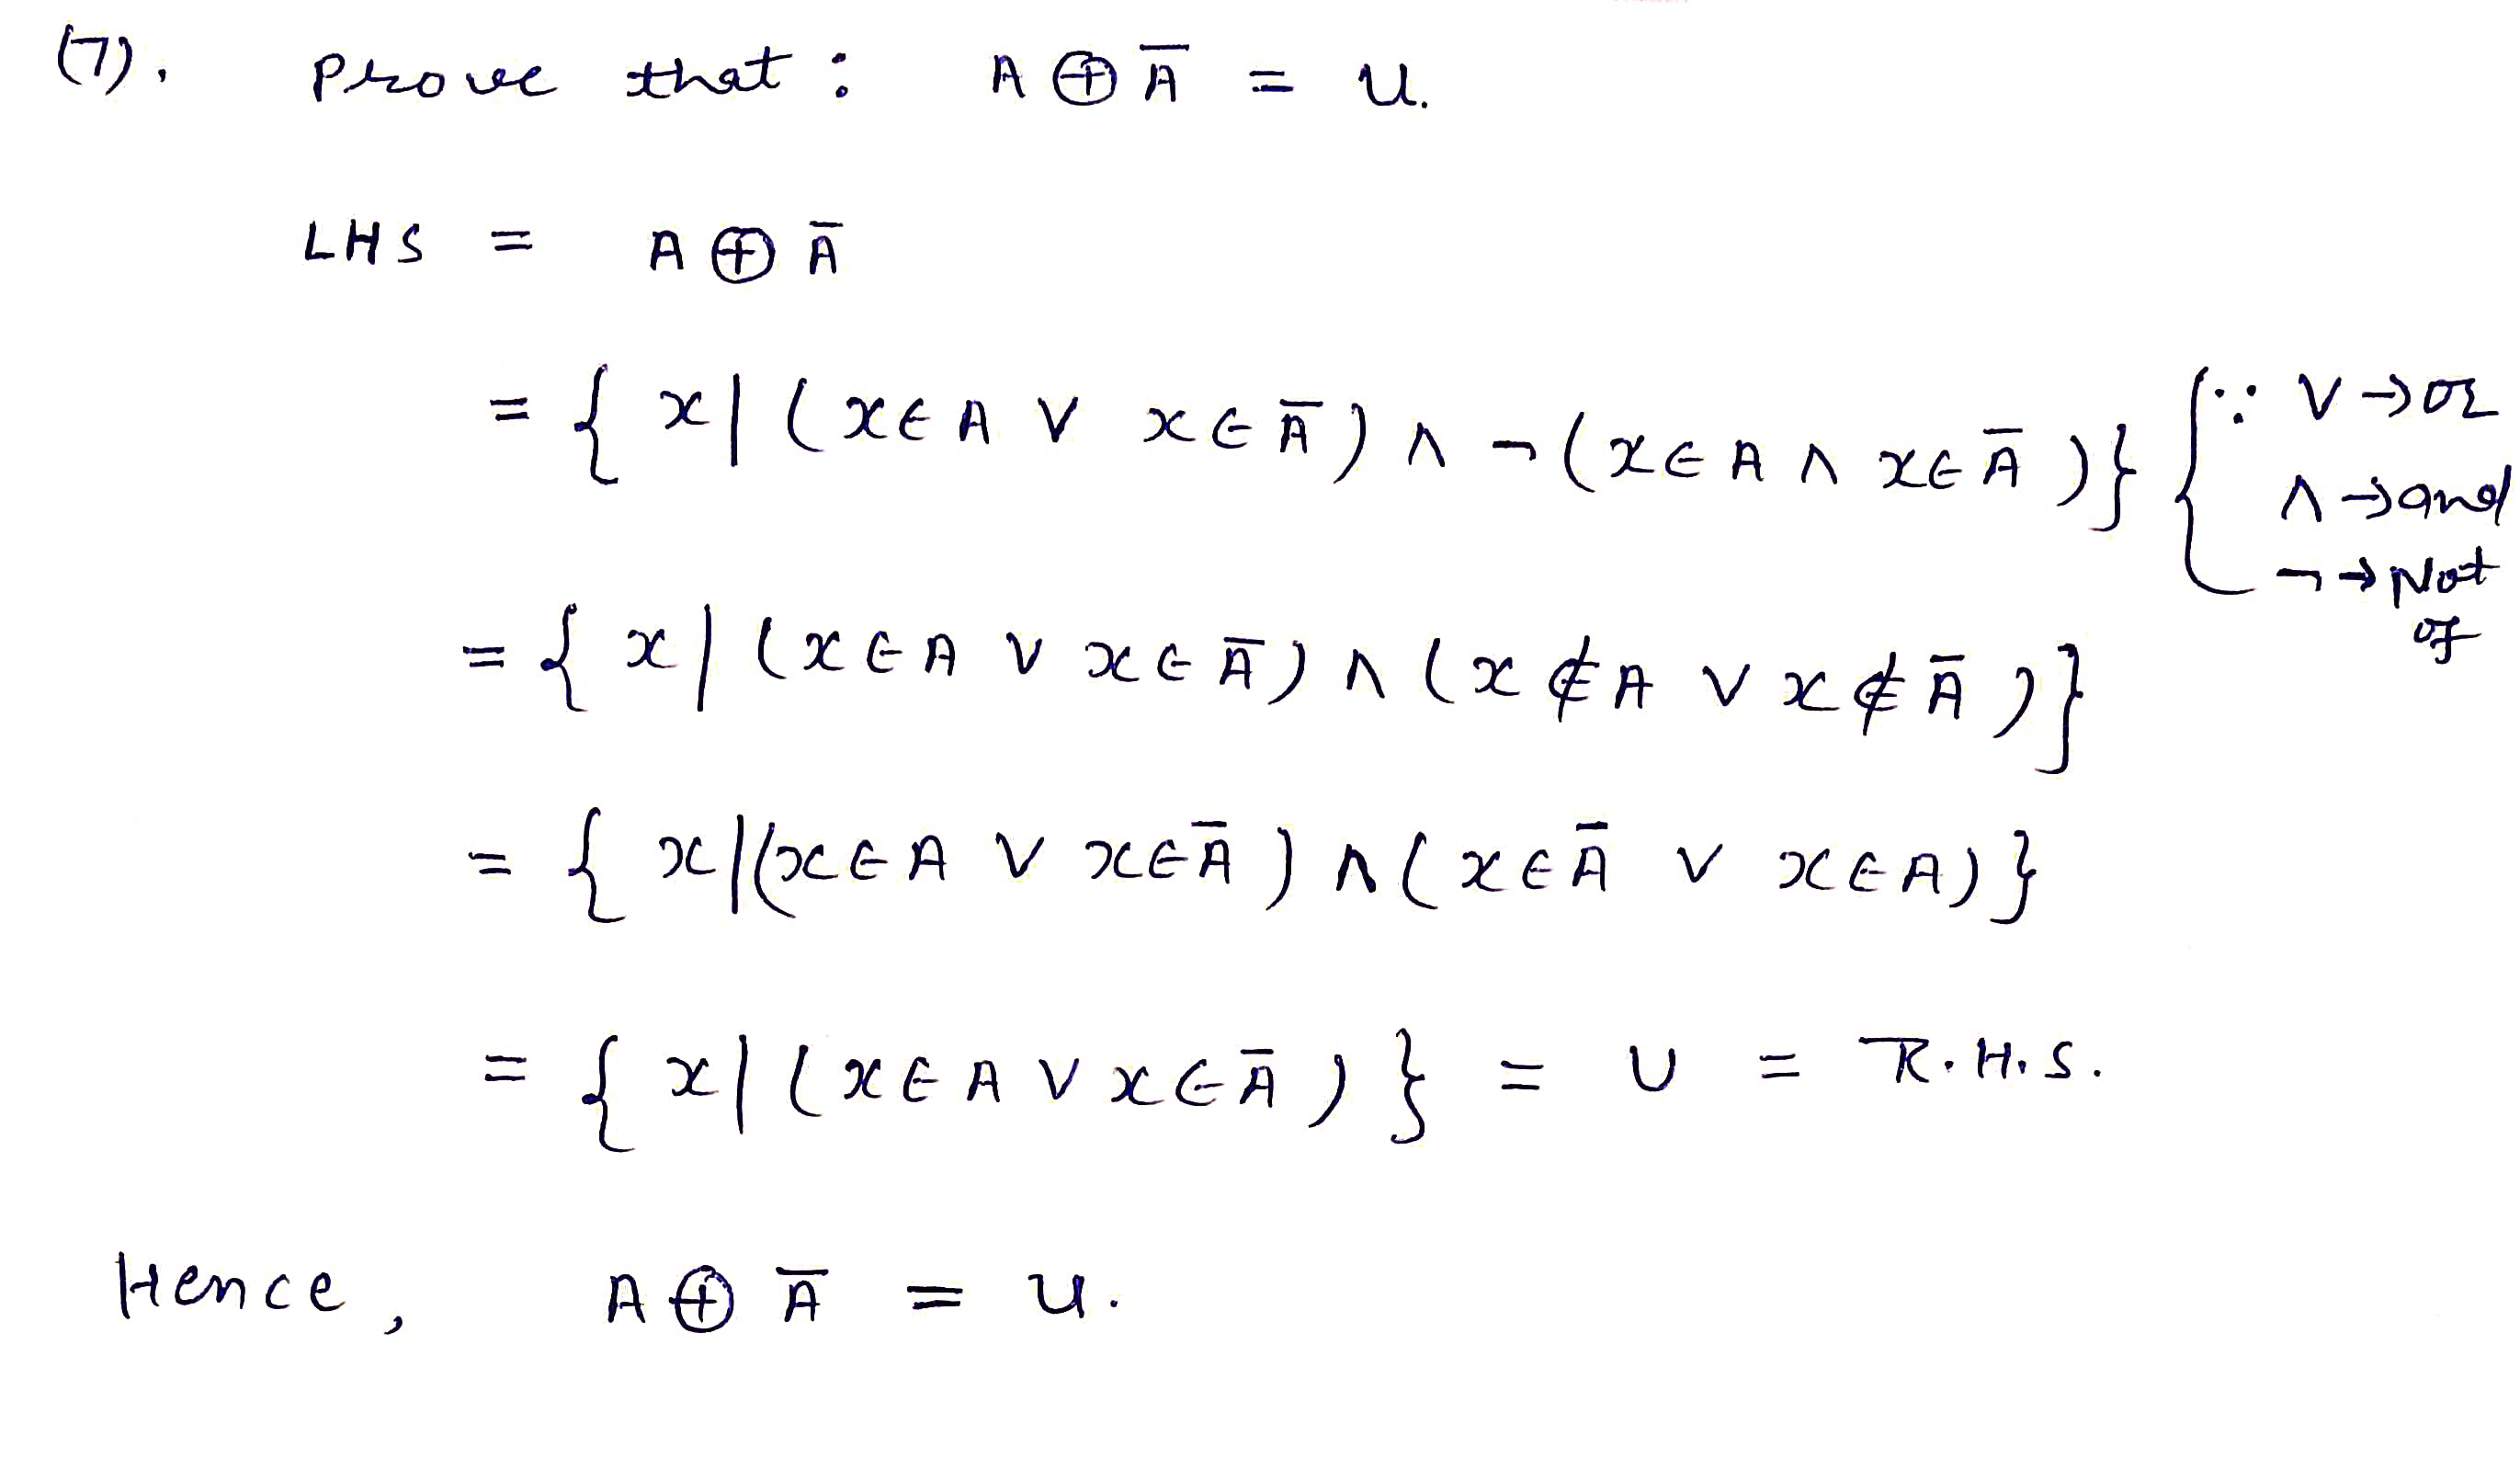 (7). Prove that : A ⊕ Ā = U.
LHS = A ⊕ Ā
= { x | ( x ∈ A ∨ x ∈ Ā ) ∧ ¬ ( x ∈ A ∧ x ∈ Ā ) } { ∵ ∨ → or
∧ → and
¬ → Not
of
= { x | ( x ∈ A ∨ x ∈ Ā ) ∧ ( x ∉ A ∨ x ∉ Ā ) }
= { x | ( x ∈ A ∨ x ∈ Ā ) ∧ ( x ∈ Ā ∨ x ∈ A ) }
= { x | ( x ∈ A ∨ x ∈ Ā ) } = U = R.H.S.
Hence, A ⊕ Ā = U.